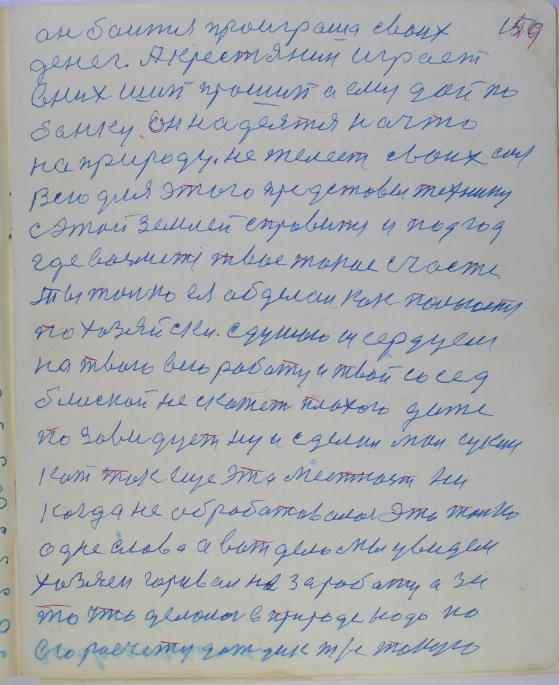 он боится проиграша своих 159
денег. А крестянин играет
вних шип прошип а ему дай по
банку. Он надеятя начто
на природу. не желеет своих сил
Всю для этого предстовел технику
с этой землей справится и подгод
где возмется твое такое счасте
ты толко ея обделай как полности
по хозяйски. сдушою и сердцем
на твою всю работу и твой сосед
блиской не скажет плохого даже
по завидует ну и сделал мол сукин
кот так еще эта местност ни
когда не обработовалас Это толко
одне слова а вот дело мы увидем
хозяен горевал не заработу а за
то что делолос в природе надо по
его расчету дождик тре такую